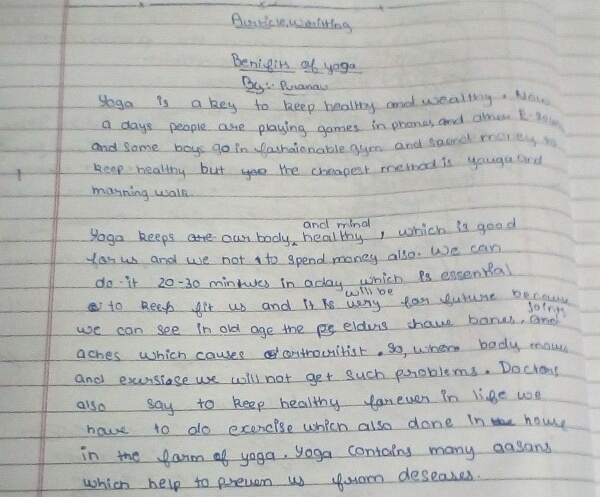 Article writing
Benifits of yoga
By:- Pranav
Yoga is a key to keep healthy and wealthy. Now
a days people are playing games in phones and
and some boys go in fashaionable gym and money to
keep healthy but the cheapest method is youga and
marning walk.
Yoga keeps our body and mind healthy, which is good
for us and we not to spend money also. We can
do it 20-30 mintues in a day which is essential
to keep fit us and it will be very for future because
we can see in old age the elders have bones, and joins
aches which causes . So, when body moves
and we will not get such problems. Doctors
also say to keep healthy farever in life we
have to do exercise which also done in house
in the farm of yoga. Yoga contains many aasans
which help to preven us from deseases.